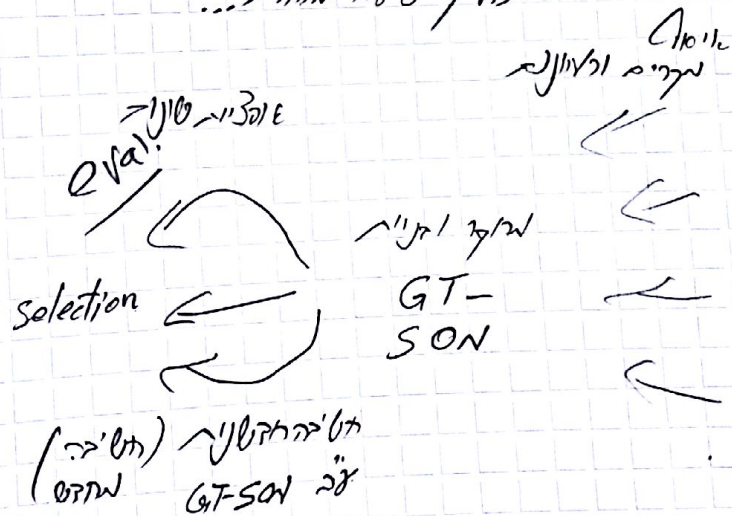 איסוף
מקרים ורעיונות
אופציות שונות
eval.
מחקר ובניית
GT-
SON
selection
חשיבה חדשנית (חשיבה
מחדש)
ע"ב GT-SON